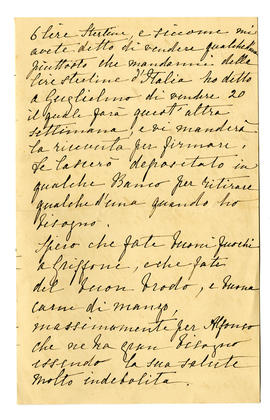 6 lire Sterline, e siccome mi
avete detto di vendere qualcheduna
piuttosto che mandarmi delle
lire sterline d'Italia ho detto
a Guglielmo di vendere 20
il quale farà quest'altra
settimana, e ve manderà
la ricevuta per firmare,
le lascerò depositate in
qualche Banco per ritirare
qualcheduna quando ho
bisogno.
Spero che fate buoni fuochi
a Griffone, e che fate
del buon brodo, e buona
carne di manzo,
massimamente per Alfonso
che ne ha gran bisogno
essendo la sua salute
molto indebolita.